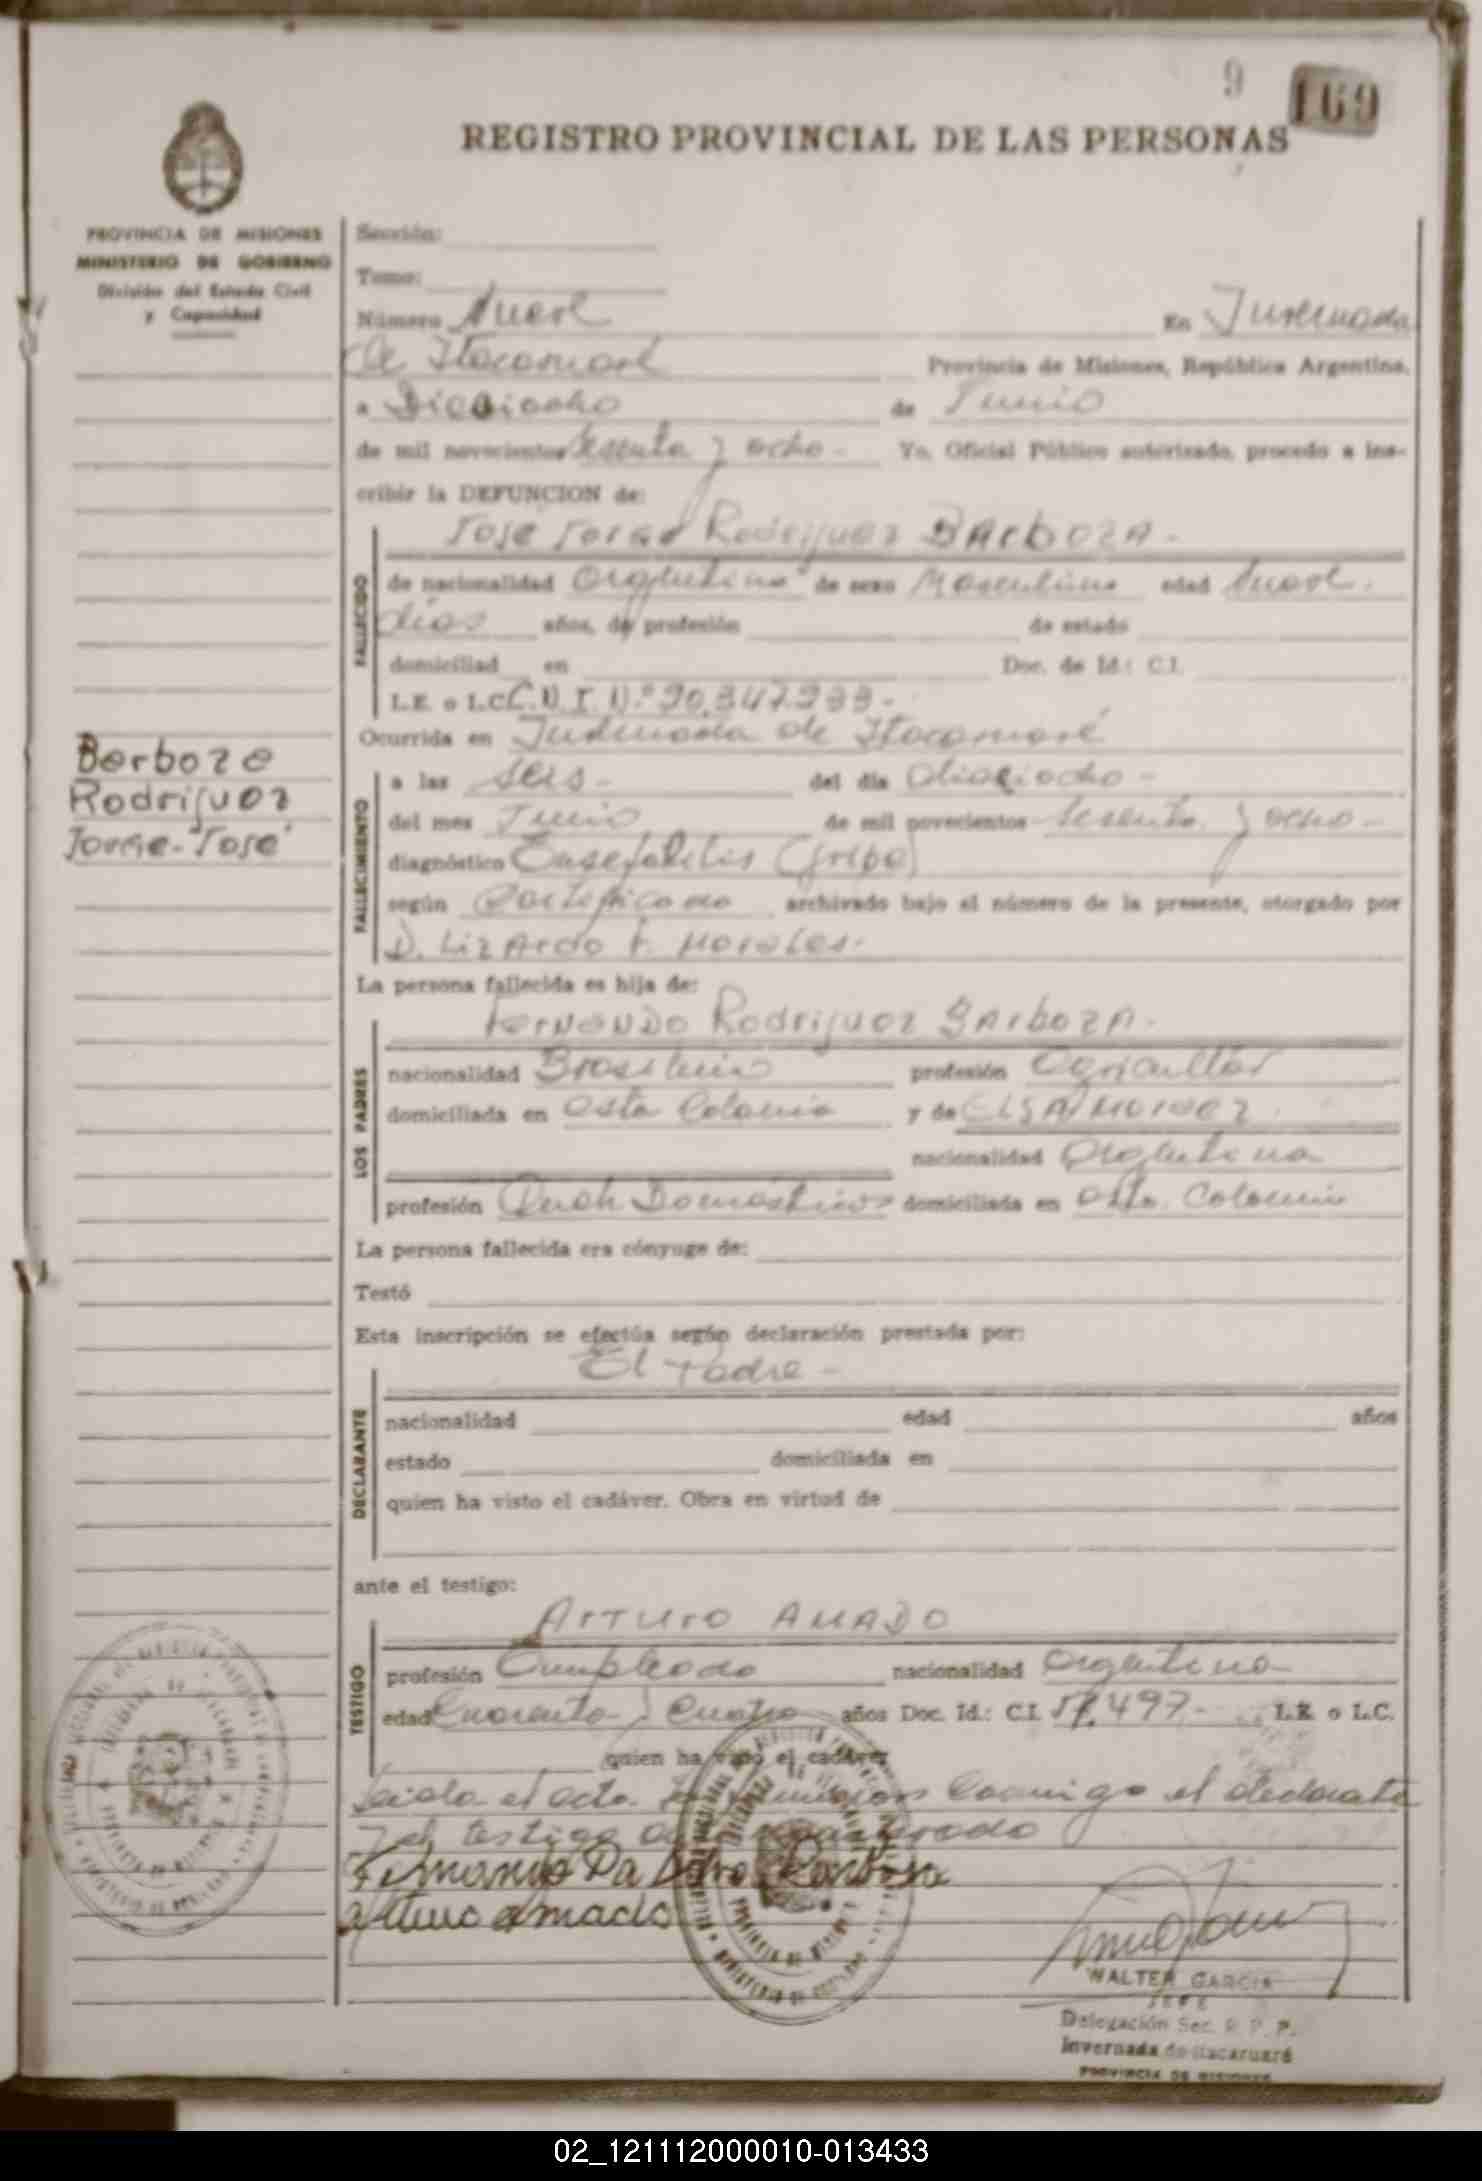 9 169
REGISTRO PROVINCIAL DE LAS PERSONAS
PROVINCIA DE MISIONES
MINISTERIO DE GOBIERNO
División del Estado Civil
y Capacidad
Sección:
Tomo:
Número Nueve En Invernada
de Itacaruaré Provincia de Misiones, República Argentina,
a Dieciocho de Junio
de mil novecientos sesenta y ocho - Yo, Oficial Público autorizado, procedo a ins-
cribir la DEFUNCION de:
Jose Jorge Rodriguez BArbozA -
FALLECIDO
de nacionalidad Argentino de sexo Masculino edad Nueve.
días años, de profesión de estado
domiciliad en Doc. de Id.: C.I.
L.E. o L.C. C.N.I. N.º 90.347.933 -
Ocurrida en Invernada de Itacaruaré
Barboza
Rodriguez
Jorge-José
FALLECIMIENTO
a las seis - del día dieciocho -
del mes Junio de mil novecientos sesenta y ocho -
diagnóstico (gripe)
según Certificado archivado bajo el número de la presente, otorgado por
D. LizArdo F. Morales.
La persona fallecida es hija de:
FerNaNDo Rodriguez BArbozA -
LOS PADRES
nacionalidad Brasileña profesión Agricultor
domiciliada en esta Colonia y de ELSA
nacionalidad Argentina
profesión Domésticos domiciliada en esta Colonia
La persona fallecida era cónyuge de:
Testó
Esta inscripción se efectúa según declaración prestada por:
El Padre -
DECLARANTE
nacionalidad edad años
estado domiciliada en
quien ha visto el cadáver. Obra en virtud de
ante el testigo:
ArTUrO AMADO
TESTIGO
profesión Empleado nacionalidad Argentina
edad Cuarenta y Cuatro años Doc. Id.: C.I. 497 - L.E. o L.C.
quien ha visto el cadáver
Leida el acta conmigo el declarante
y el testigo
Fernando Barbosa
Arturo Amado
WALTER GARCIA
JEFE
Delegación Sec. R. P. P.
Invernada de Itacaruaré
PROVINCIA DE MISIONES
02_121112000010-013433